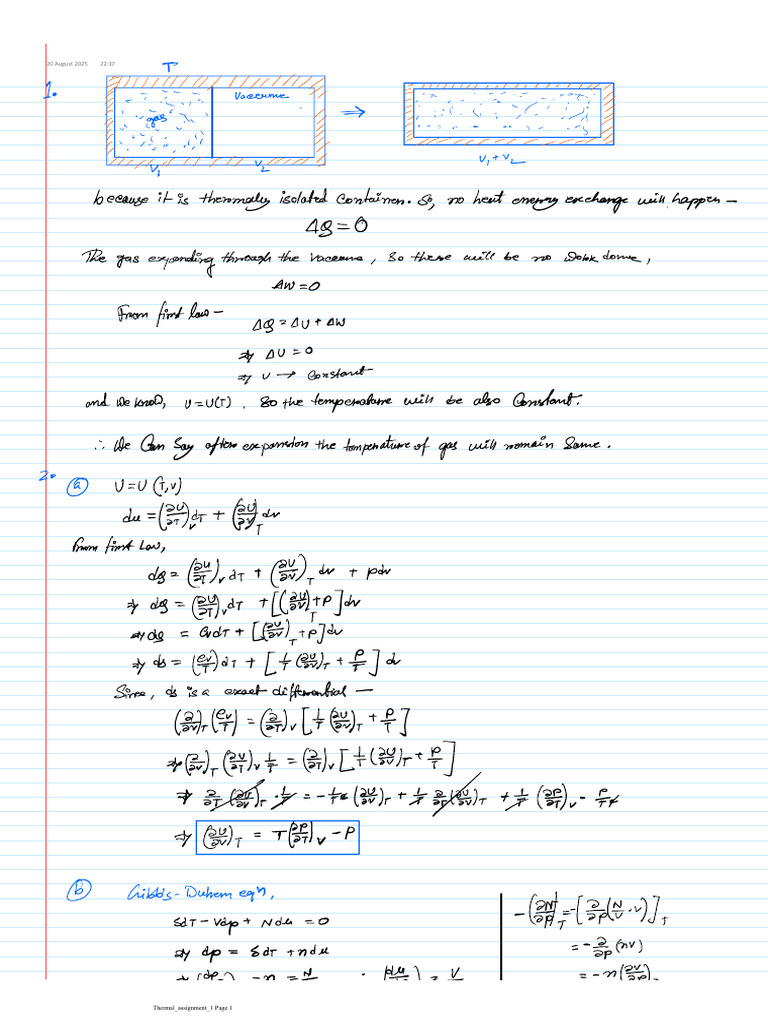 20 August 2025 22:37
1.
T
gas
Vaccume
⇒
V₁ V₂
V₁ + V₂
because it is thermally isolated container. So, no heat energy exchange will happen —
ΔQ = 0
The gas expanding through the vaccume, so there will be no work done,
ΔW = 0
From first law —
ΔQ = ΔU + ΔW
⇒ ΔU = 0
⇒ U → Constant
and we know, U = U(T). So the temperature will be also Constant.
∴ We Can Say after expansion the temperature of gas will remain Same.
2.
(a) U = U(T, V)
du = (∂U/∂T)_V dT + (∂U/∂V)_T dv
From first Law,
dQ = (∂U/∂T)_V dT + (∂U/∂V)_T dv + pdv
⇒ dQ = (∂U/∂T)_V dT + [(∂U/∂V)_T + P] dv
⇒ dQ = Cv dT + [(∂U/∂V)_T + P] dv
⇒ ds = (Cv/T) dT + [1/T (∂U/∂V)_T + P/T] dv
Since, ds is a exact differential —
(∂/∂V)_T (Cv/T) = (∂/∂T)_V [1/T (∂U/∂V)_T + P/T]
⇒ (∂/∂V)_T (∂U/∂T)_V 1/T = (∂/∂T)_V [1/T (∂U/∂V)_T + P/T]
⇒ ∂/∂T (∂U/∂V)_T · 1/T = -1/T² (∂U/∂V)_T + 1/T ∂/∂T (∂U/∂V)_T + 1/T (∂P/∂T)_V - P/T²
⇒ (∂U/∂V)_T = T(∂P/∂T)_V - P
(b) Gibbs-Duhem eqn,
SdT - Vdp + Ndu = 0
⇒ dp = SdT + ndu
-(∂N/∂P)_T = -[∂/∂P (N/V · V)]_T
= -∂/∂P (nV)
= -n(∂V/∂P)
Thermal_assignment_1 Page 1